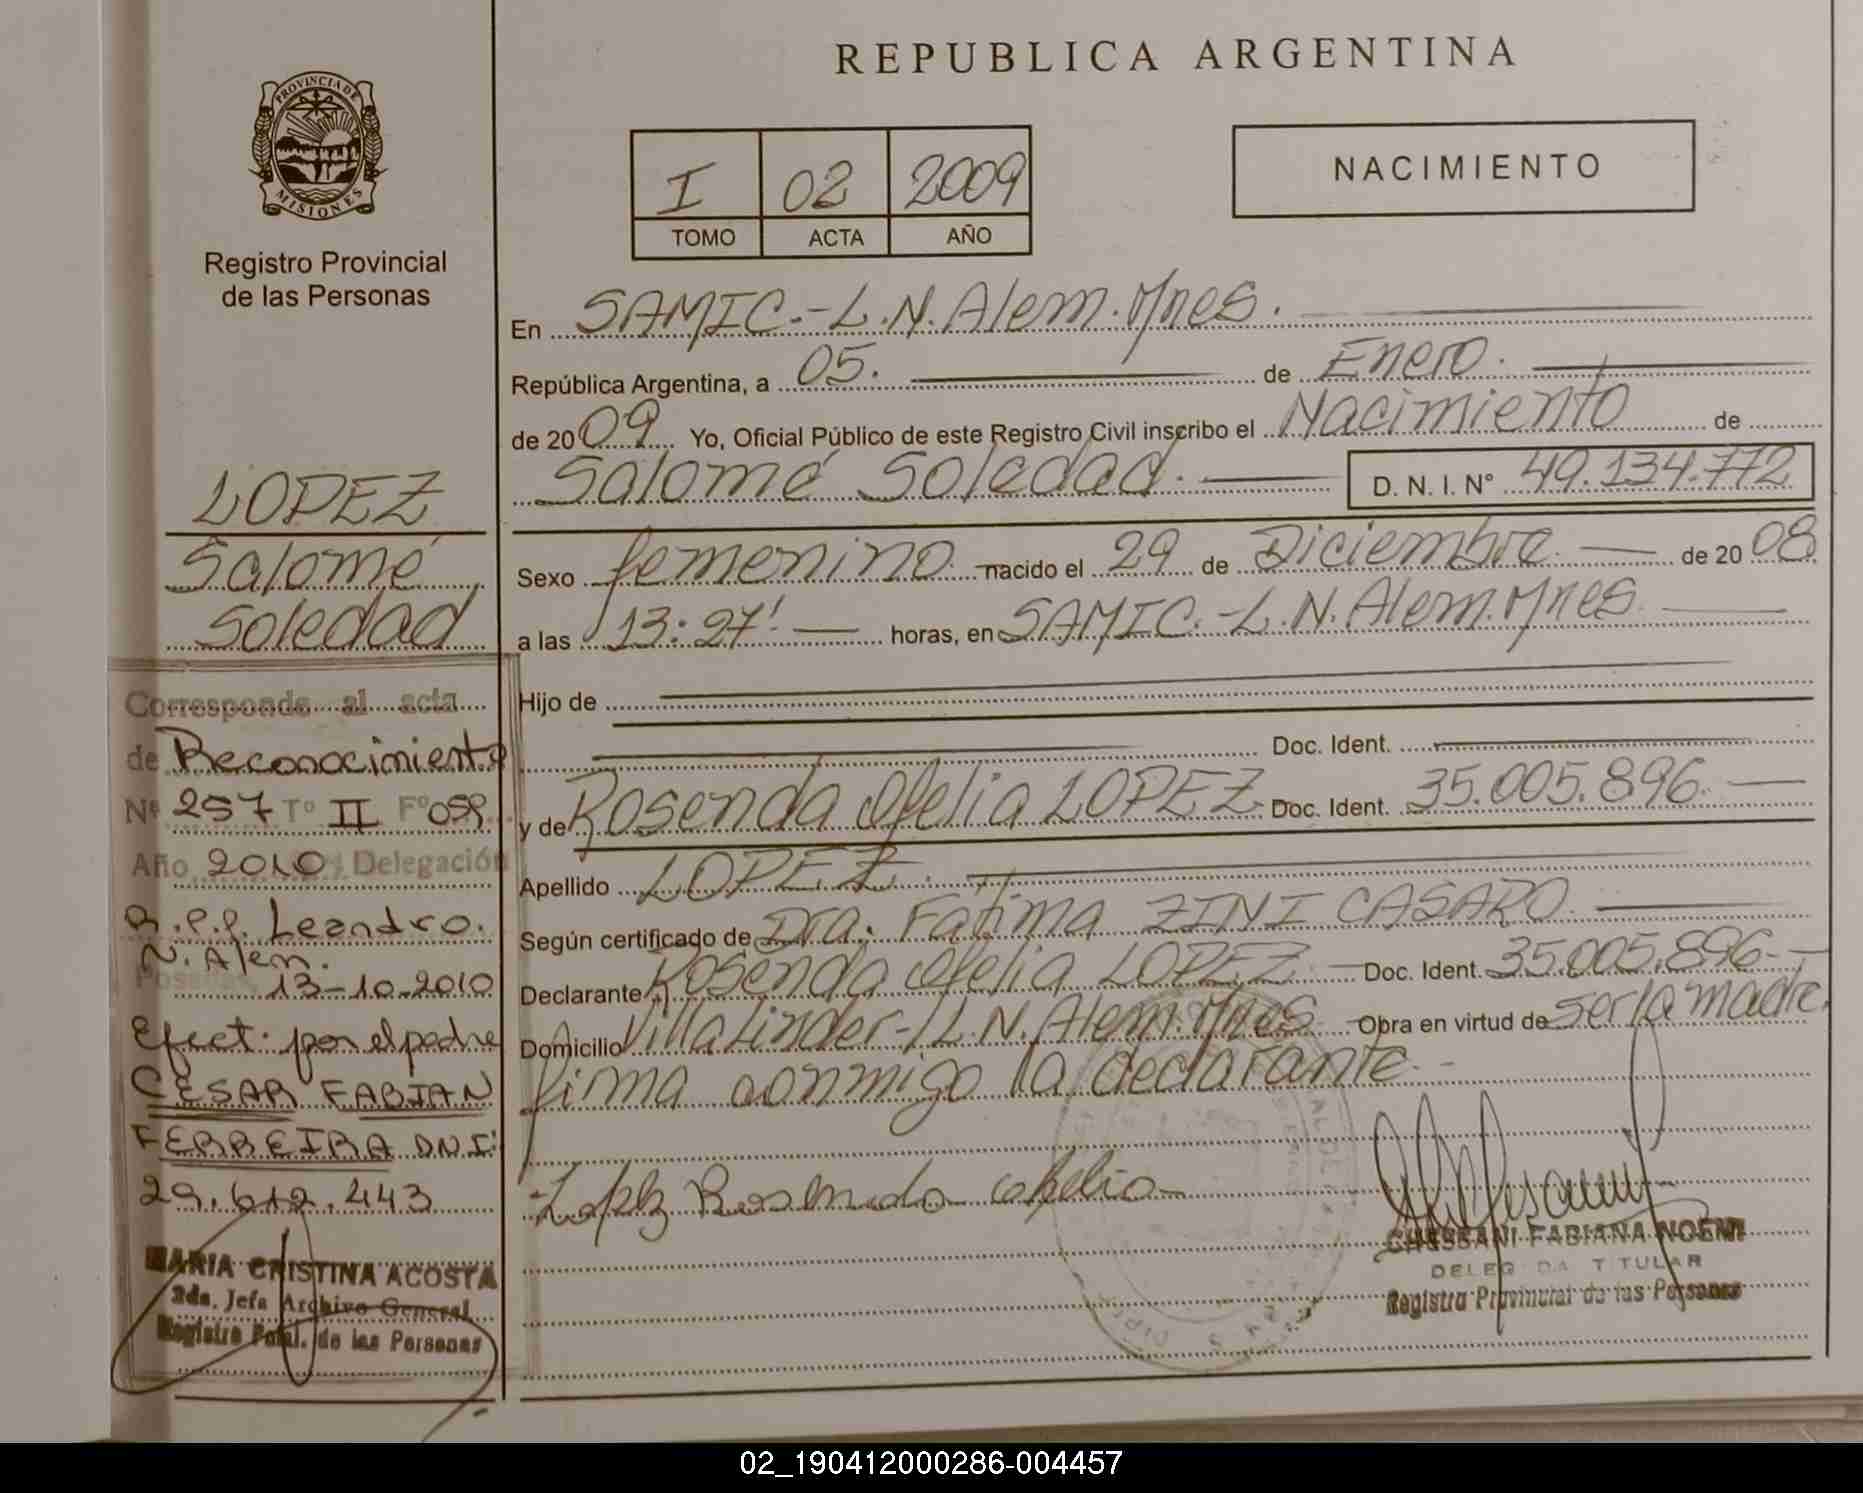 REPUBLICA ARGENTINA
PROVINCIA DE
MISIONES
Registro Provincial
de las Personas
I 02 2009
TOMO ACTA AÑO
NACIMIENTO
En SAMIC.-L.N.Alem.Mnes.
República Argentina, a 05. de Enero.
de 2009 Yo, Oficial Público de este Registro Civil inscribo el Nacimiento de
Salomé Soledad. D. N. I. N° 49.134.772
Sexo femenino nacido el 29 de Diciembre de 2008
a las 13:27' horas, en SAMIC.-L.N.Alem.Mnes.
Hijo de
Doc. Ident.
y de Rosenda Ofelia LOPEZ Doc. Ident. 35.005.896.
Apellido LOPEZ.
Según certificado de Dra. Fatima ZINI CASARO.
Declarante Rosenda Ofelia LOPEZ Doc. Ident. 35.005.896-
Domicilio Villa Linder-L.N.Alem.Mnes Obra en virtud de ser la madre,
firma conmigo la declarante.-
Lopez Rosenda Ofelia
CHESSANI FABIANA NOEMI
DELEGADA TITULAR
Registro Provincial de las Personas
LOPEZ
Salomé
Soledad
Corresponde al acta
de Reconocimiento
Nº 257 Tº II Fº 059
Año 2010 Delegación
R.P.P. Leandro.
N. Alem.
Posadas, 13-10-2010
Efect. por el padre
CESAR FABIAN
FERREIRA DNI:
29.612.443
MARIA CRISTINA ACOSTA
2da. Jefa Archivo General
Registro Pcial. de las Personas
02_190412000286-004457